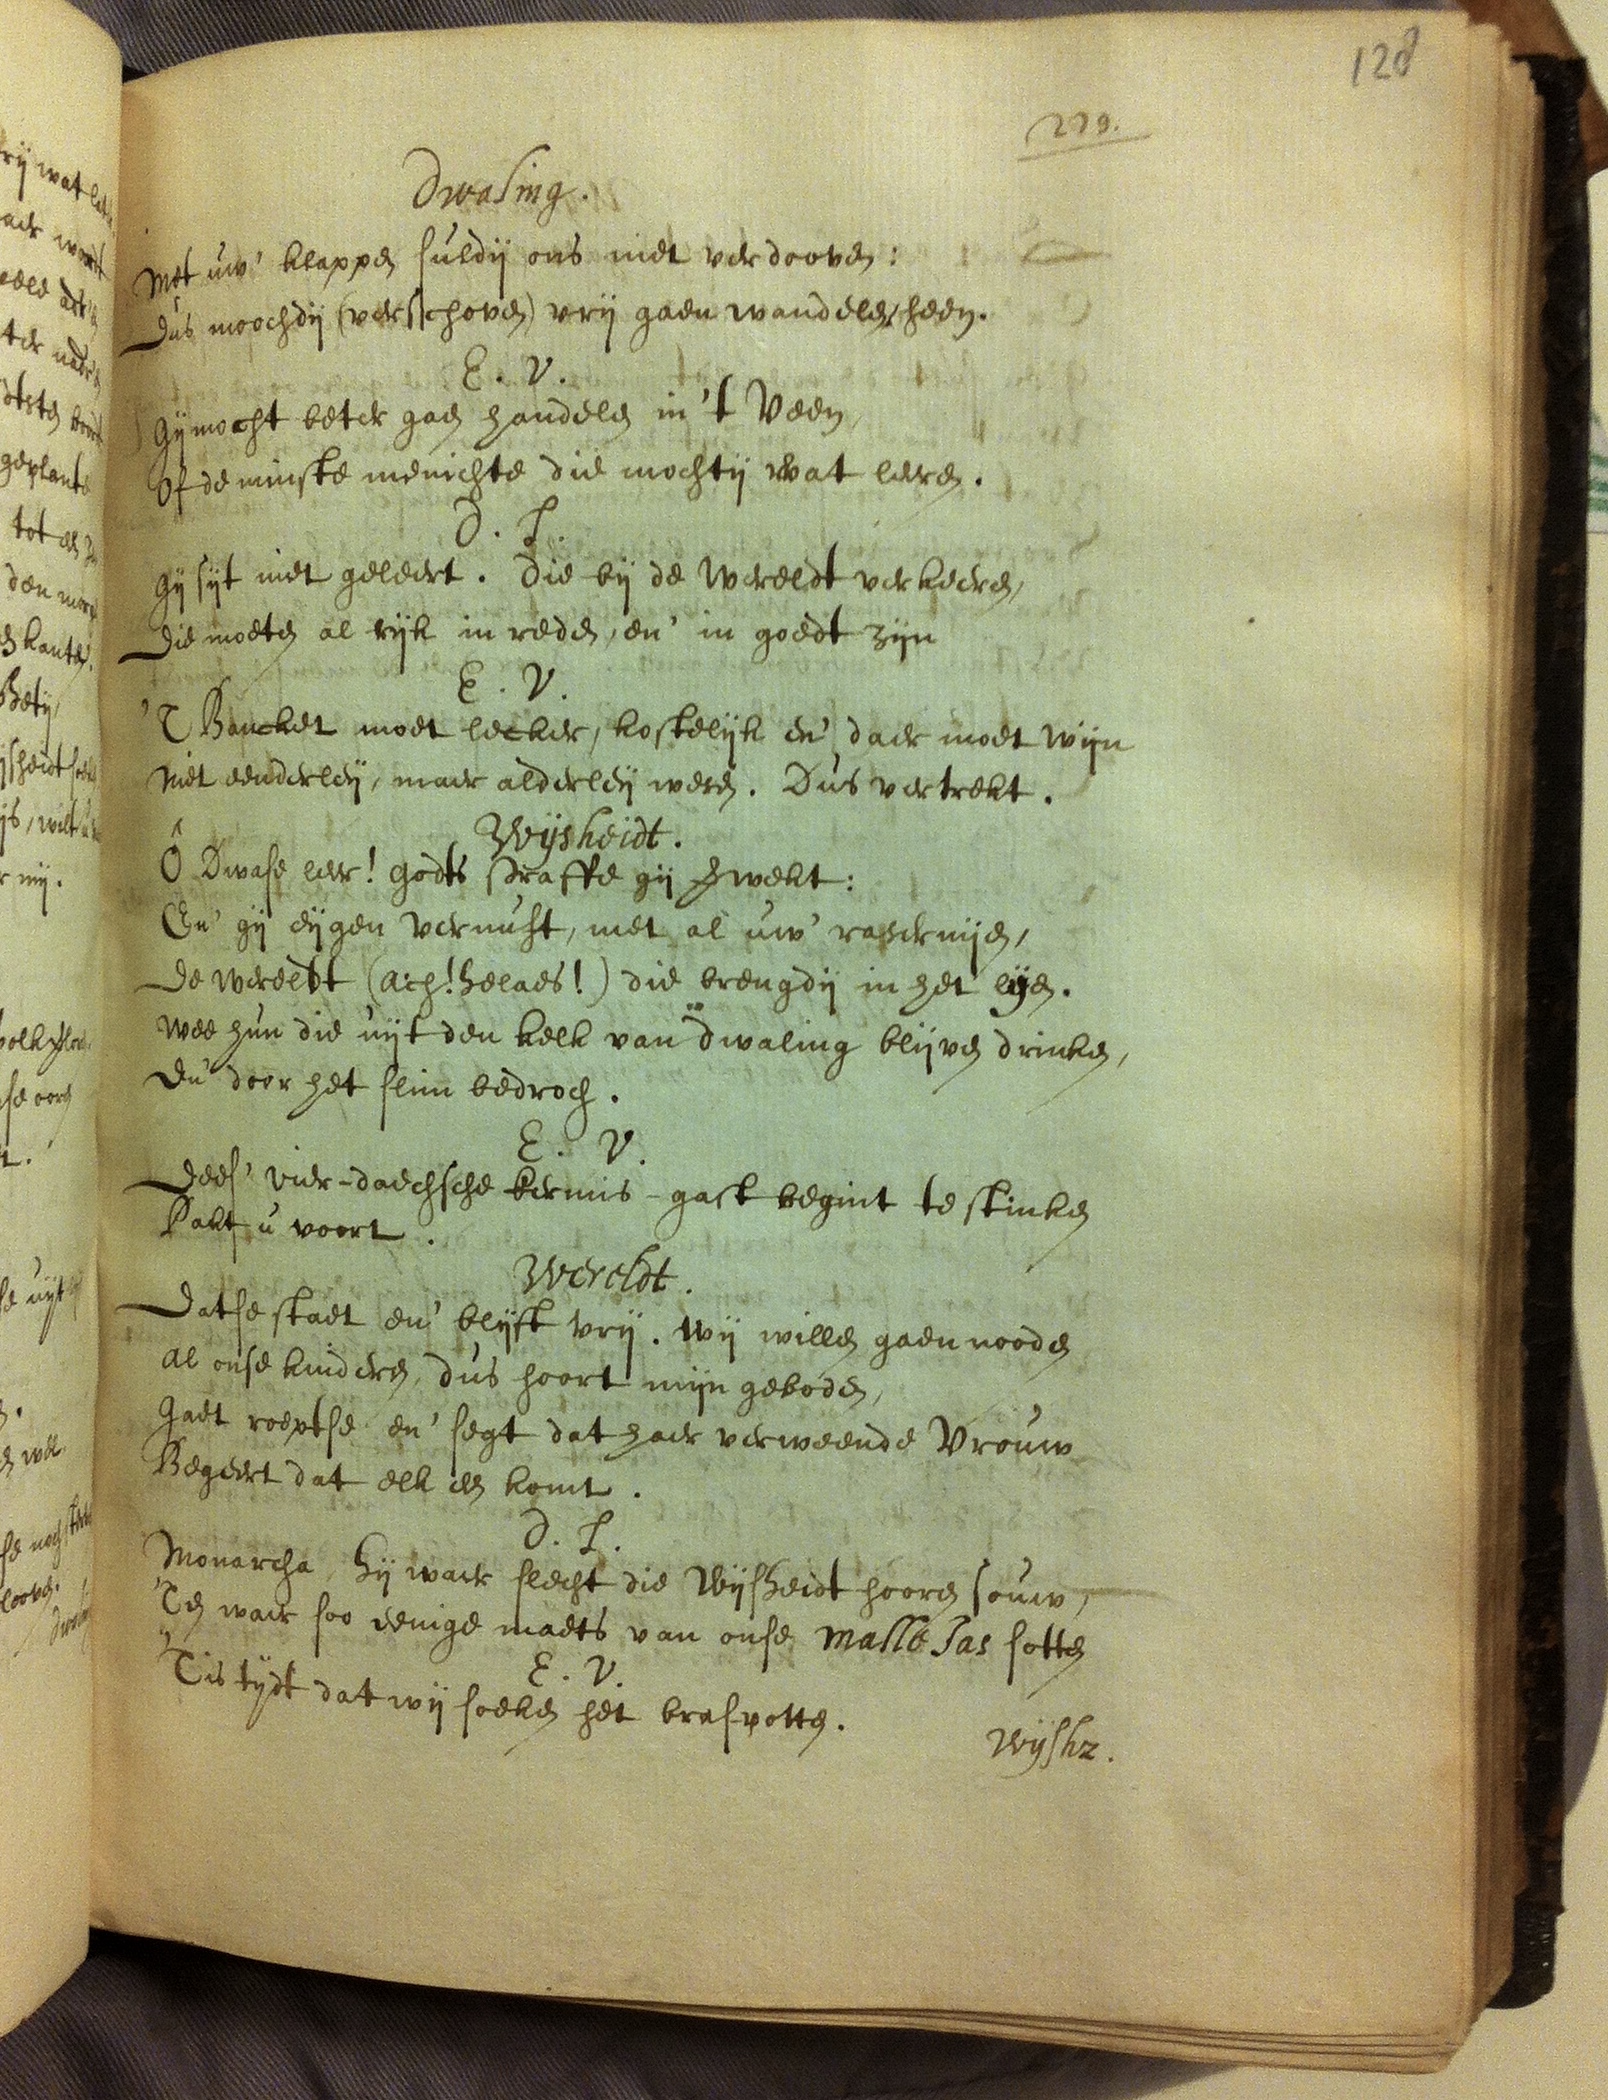 128
279.
Dwasing.
Met uw' klappen suldij ons niet verdooven:
Dus moochdij (verschoven) vrij gaen wandelen heen.
E. V.
Gij mocht beter gaen handelen in 't Veen,
Of de minste menichte die mochtij wat leeren.
D. L.
Gij sijt niet geleert. Die bij de Wereldt verkeeren,
Die moeten al rijk in reden, en' in goedt zijn
E. V.
'T Bancket moet lecker, kostelijk en' daer moet wijn
Niet eenderleij, maer alderleij wesen. Dus vertrekt.
Wijsheidt.
Ô Dwase leer! Godts straffe gij verwekt:
En' gij eijgen vernuft, met al uw' rasernijen,
De wereldt (ach! helaes!) die brengdij in het lijen.
Wee hun die uijt den kelk van dwaling blijven drinken,
En' door het slim bedroch.
E. V.
Dees' vier-daechsche kermis-gast begint te stinken
Pakt u voort.
Wereldt.
Datse staet en' blijft vrij. Wij willen gaen nooden
Al onse kinderen, dus hoort mijn geboden,
Gaet roeptse en' segt dat haer verweende Vrouw
Begeert dat elk een komt.
D. L.
Monarcha, hij waer slecht die Wijsheidt hooren souw,
'T En waer soo eenige maets van onse Malle Jas sotten
E. V.
'T is tijdt dat wij soeken het brasspotten.
Wijshz.